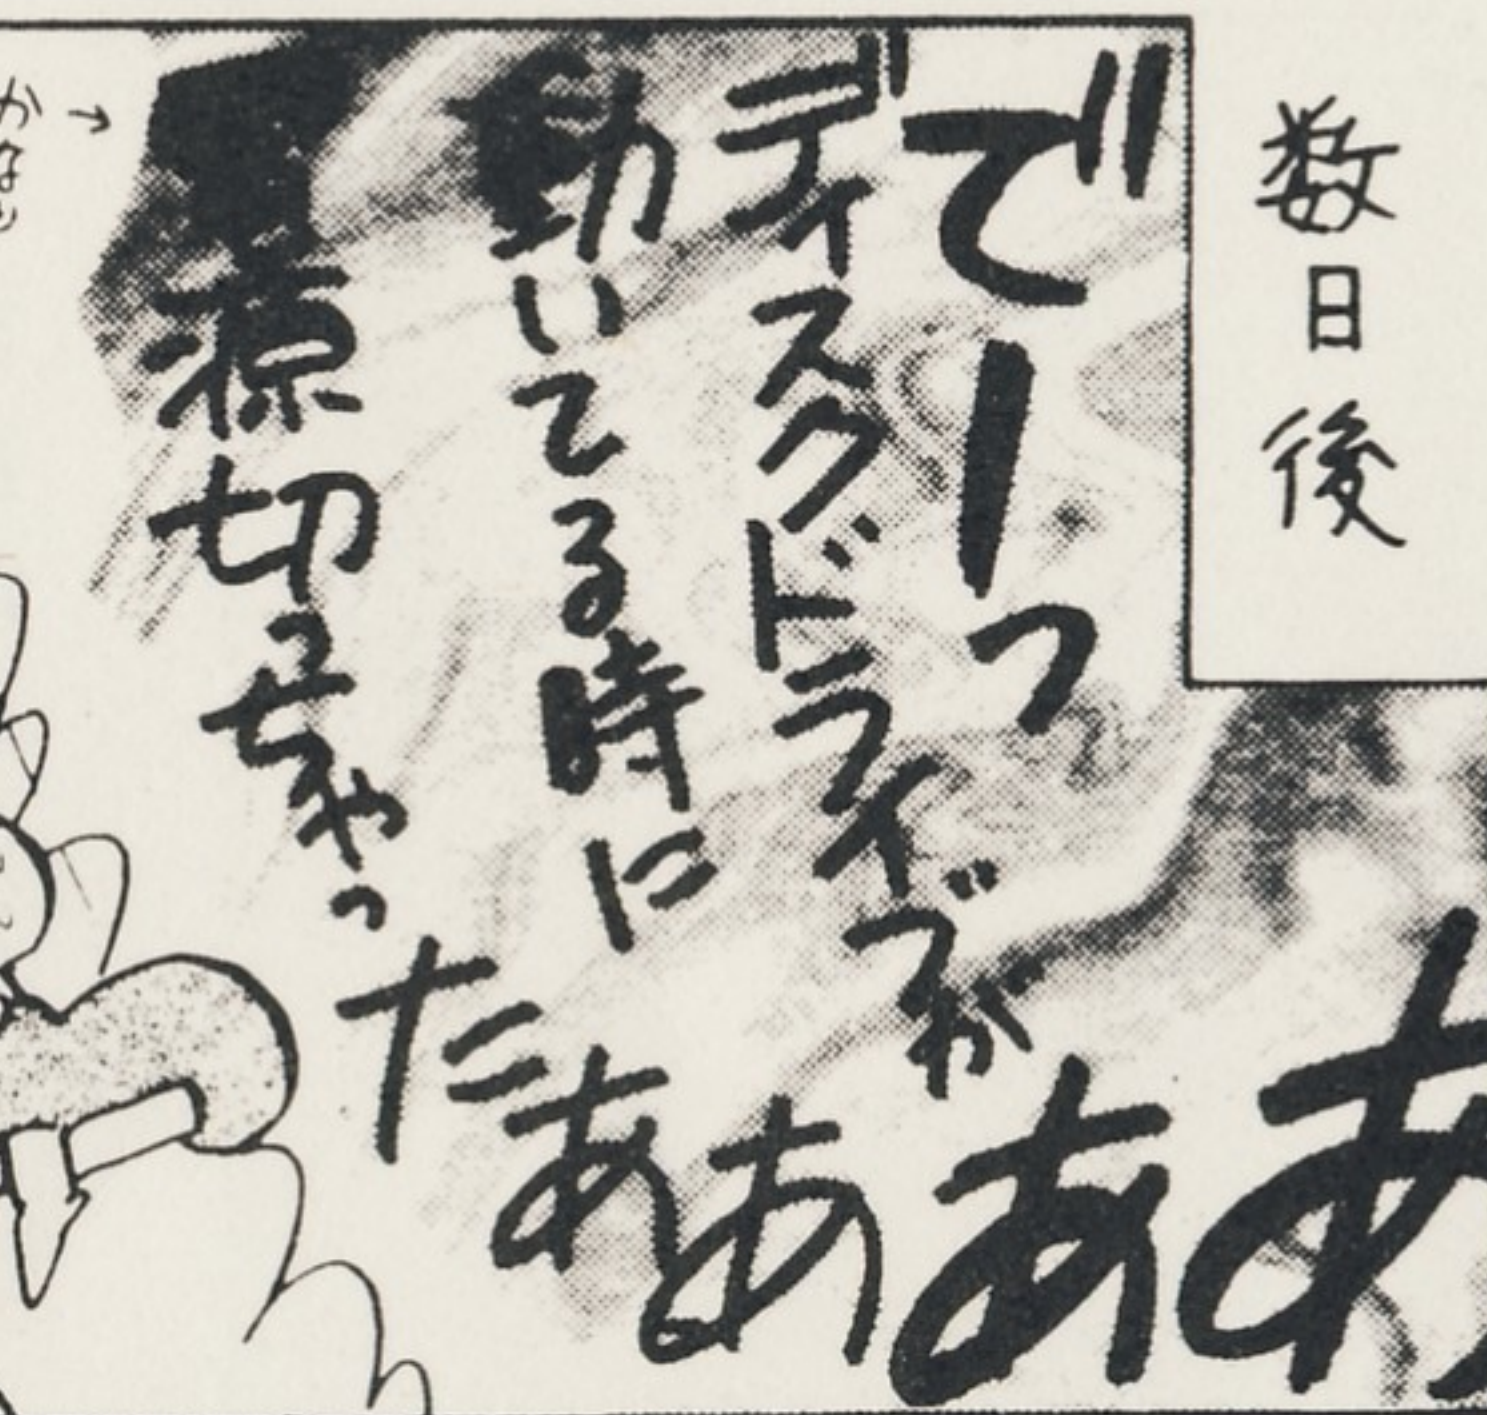 数日後
でーっ
ディスクドライブが
動いてる時に
電源切っちゃったああああ
かなり→